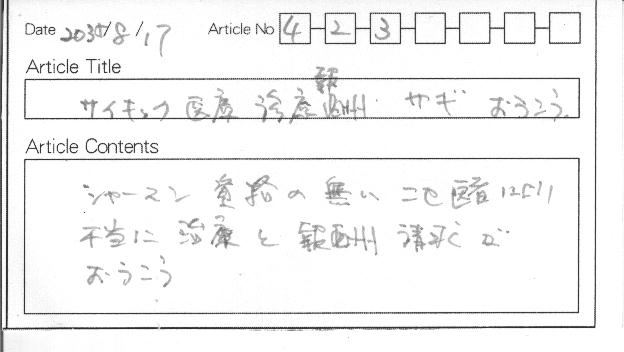 Date 2035/8/17 Article No 4 2 3
Article Title
サイキック 医療 診療報酬 サギ おうこう.
Article Contents
シャーマン 資格の無い ニセ医者により
不当に 治療と 報酬 請求が
おうこう